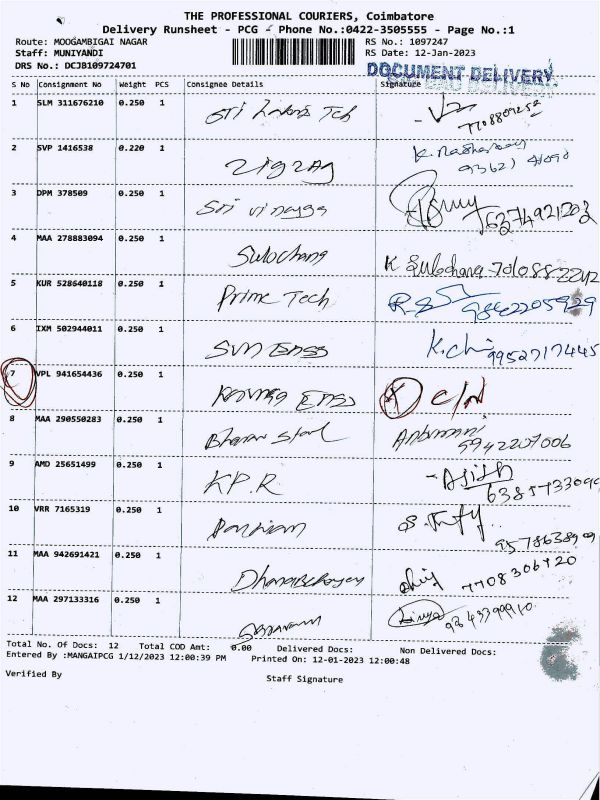 THE PROFESSIONAL COURIERS, Coimbatore
Delivery Runsheet - PCG - Phone No.:0422-3505555 - Page No.:1
Route: MOOGAMBIGAI NAGAR RS No.: 1097247
Staff: MUNIYANDI RS Date: 12-Jan-2023
DRS No.: DCJB109724701
DOCUMENT DELIVERY
S No Consignment No Weight PCS Consignee Details Signature
1 SLM 311676210 0.250 1 Sri Lakmi Tch
2 SVP 1416538 0.220 1 Zigzag
3 DPM 378509 0.250 1 Sri vinayga 6374921203
4 MAA 278883094 0.250 1 Sulochana K Sulochana
5 KUR 528640118 0.250 1 Prime Tech 9842205929
6 IXM 502944011 0.250 1 Sun Engg 9952717445
7 VPL 941654436 0.250 1 C/N
8 MAA 290550283 0.250 1 Bharan Steel 5942207006
9 AMD 25651499 0.250 1 K.P.R
10 VRR 7165319 0.250 1 Pandian
11 MAA 942691421 0.250 1 7708306420
12 MAA 297133316 0.250 1 9843399910
Total No. Of Docs: 12 Total COD Amt: 0.00 Delivered Docs: Non Delivered Docs:
Entered By :MANGAIPCG 1/12/2023 12:00:39 PM Printed On: 12-01-2023 12:00:48
Verified By Staff Signature